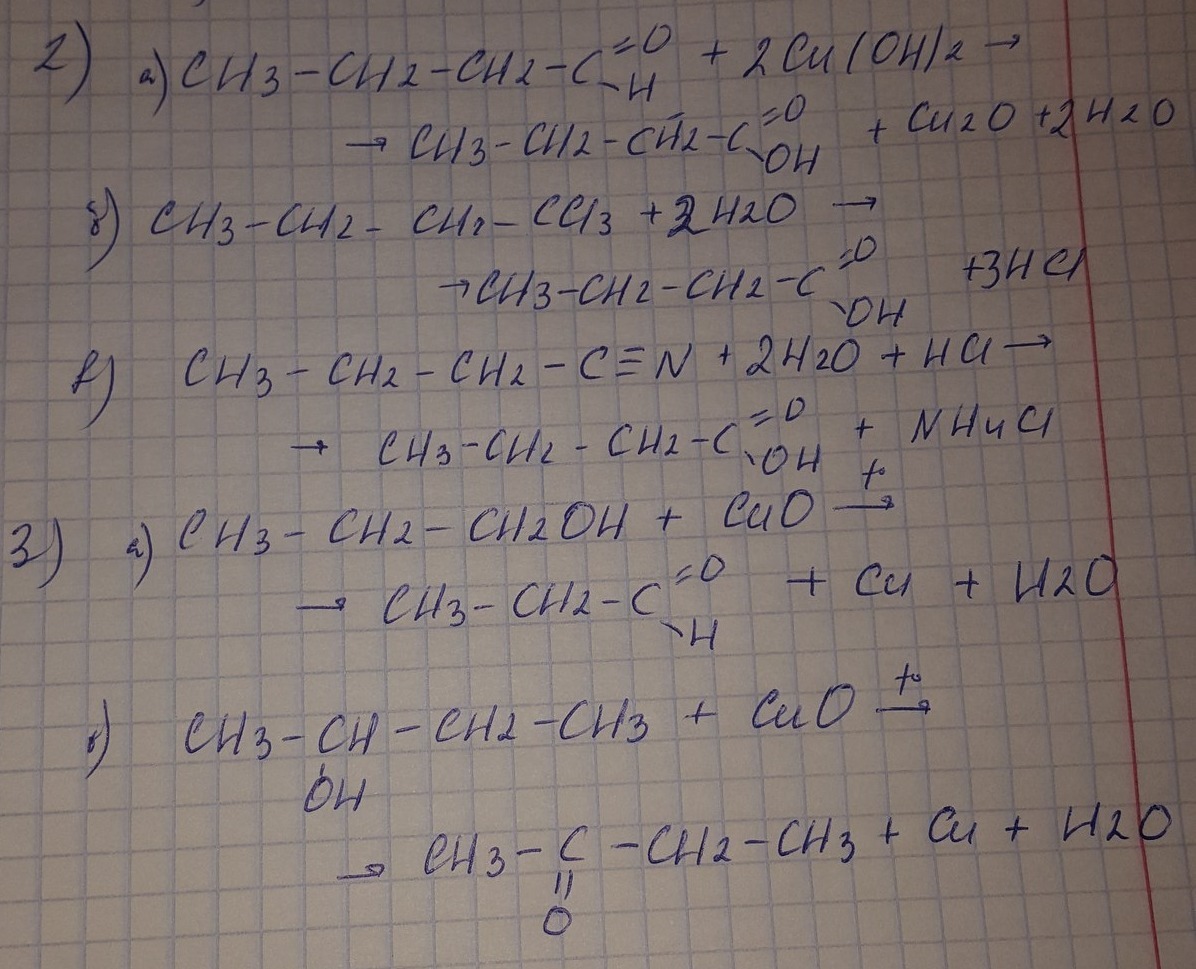 2) а) CH3-CH2-CH2-C=O-H + 2Cu(OH)2 →
→ CH3-CH2-CH2-C=O-OH + Cu2O + 2H2O
б) CH3-CH2-CH2-CCl3 + 2H2O →
→ CH3-CH2-CH2-C=O-OH + 3HCl
в) CH3-CH2-CH2-C≡N + 2H2O + HCl →
→ CH3-CH2-CH2-C=O-OH + NH4Cl
3) а) CH3-CH2-CH2OH + CuO t° →
→ CH3-CH2-C=O-H + Cu + H2O
б) CH3-CH-CH2-CH3 + CuO t° →
OH
→ CH3-C-CH2-CH3 + Cu + H2O
=
O